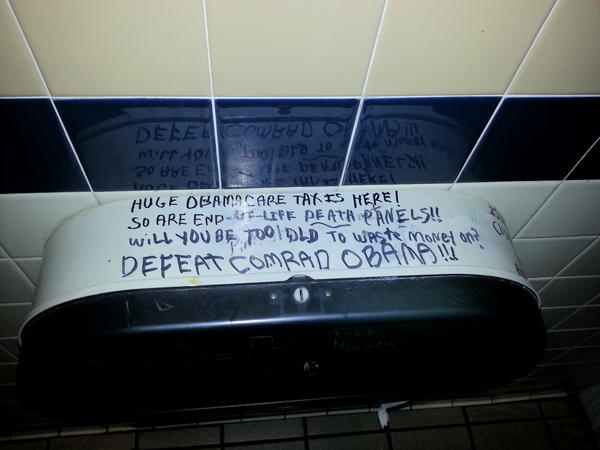 HUGE OBAMACARE TAX IS HERE!
SO ARE END-OF-LIFE DEATH PANELS!!
WILL YOU BE TOO OLD TO WASTE MONEY ON?
DEFEAT COMRAD OBAMA!!!
FUCK